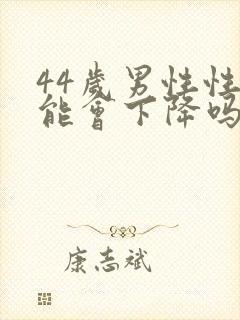 44歲男性性
能會下降吗
康志斌